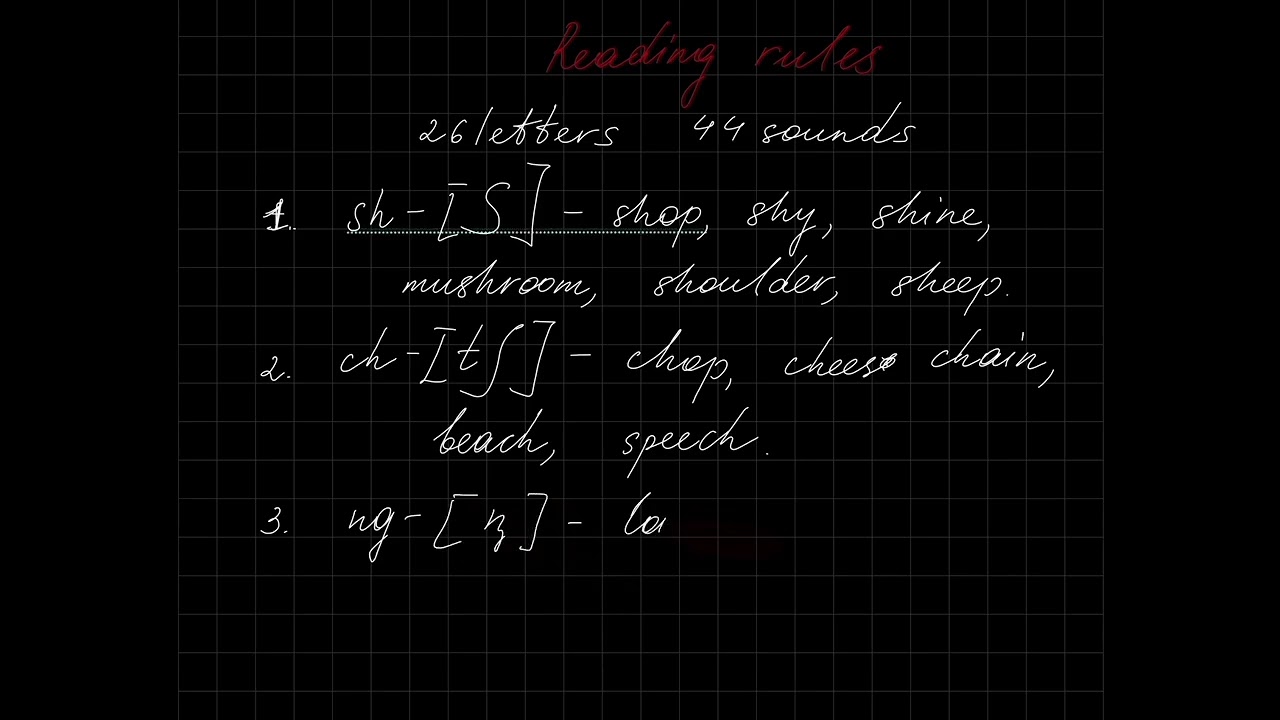 Reading rules
26 letters 44 sounds
1. sh - [ʃ] - shop, shy, shine,
mushroom, shoulder, sheep.
2. ch - [tʃ] - chop, cheese chain,
beach, speech.
3. ng - [ŋ] - lo